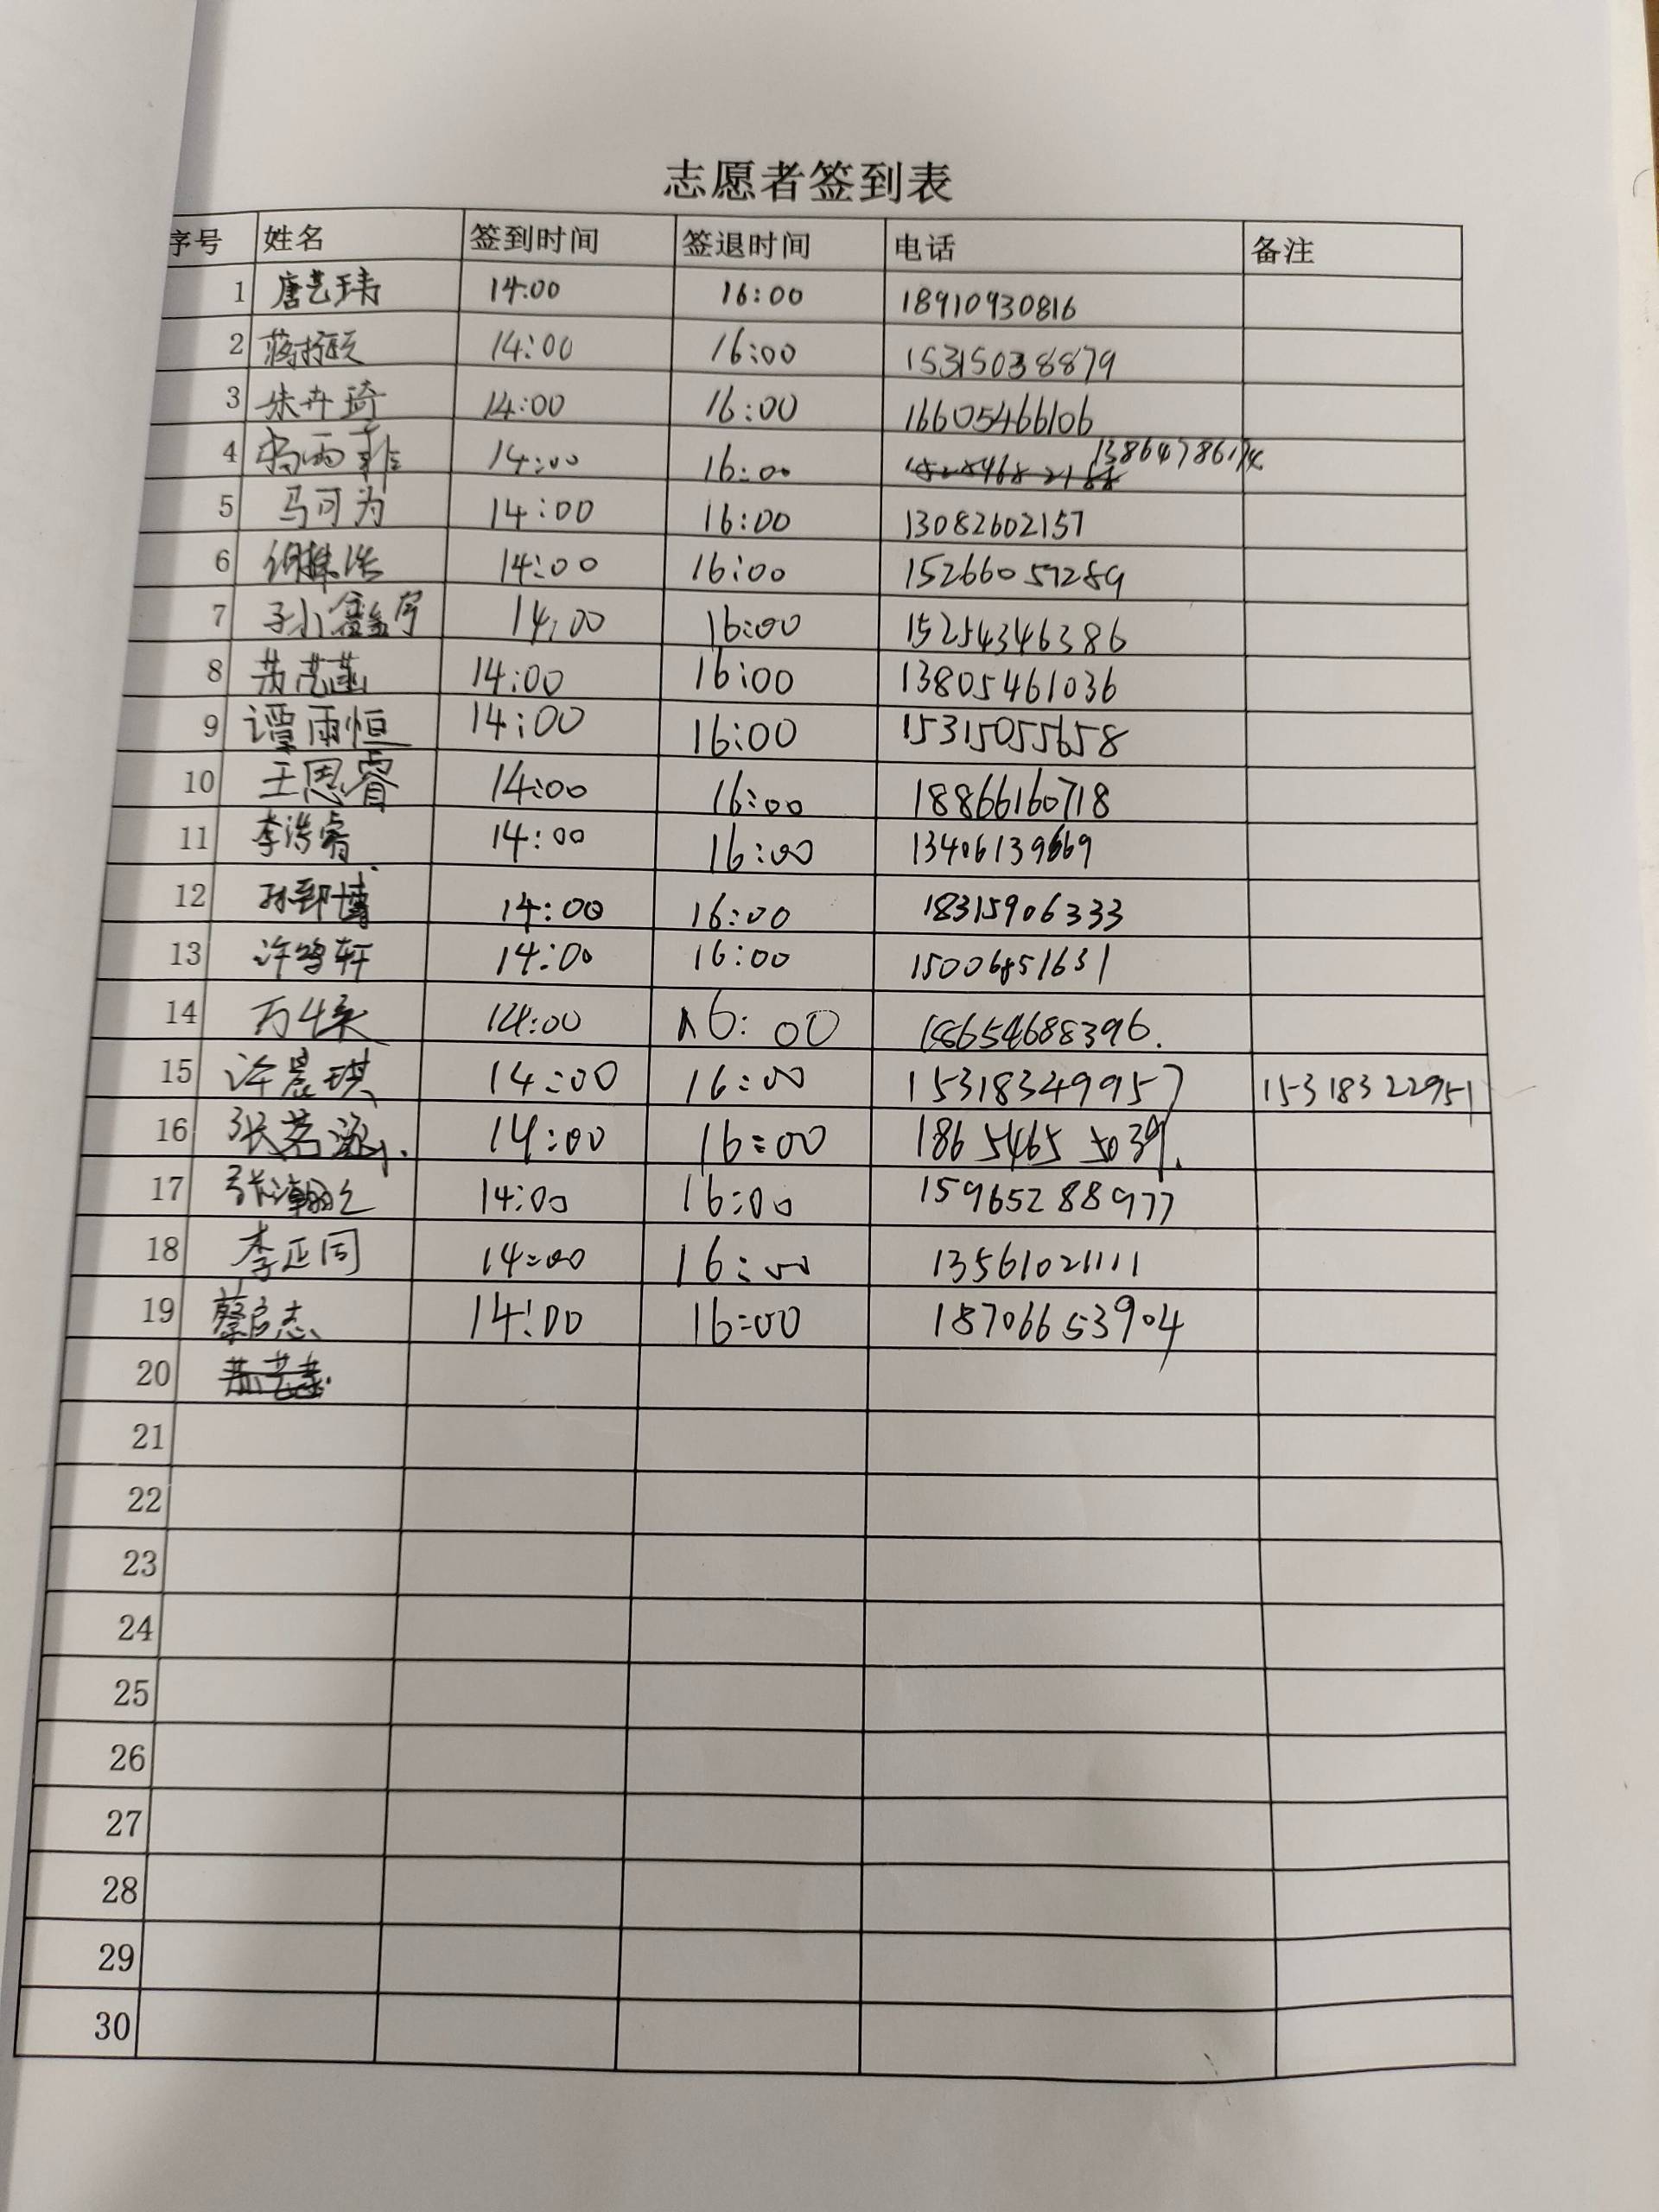 志愿者签到表
序号 姓名 签到时间 签退时间 电话 备注
1 唐艺玮 14:00 16:00 18910930816
2 14:00 16:00 15315038879
3 朱卉琦 14:00 16:00 16605466106
4 14:00 16:00
5 马可为 14:00 16:00 13082602157
6 14:00 16:00 15266057289
7 14:00 16:00 15254346386
8 14:00 16:00 13805461036
9 谭雨恒 14:00 16:00 15315055658
10 王恩睿 14:00 16:00 18866160718
11 李浩睿 14:00 16:00
12 14:00 16:00 18315906333
13 14:00 16:00
14 14:00 16:00 18654688396.
15 许晨琪 14:00 16:00 15318349957 15318322951
16 14:00 16:00 18654655039.
17 张瀚之 14:00 16:00 15965288977
18 李正同 14:00 16:00 13561021111
19 蔡启志 14:00 16:00 18706653904
20
21
22
23
24
25
26
27
28
29
30